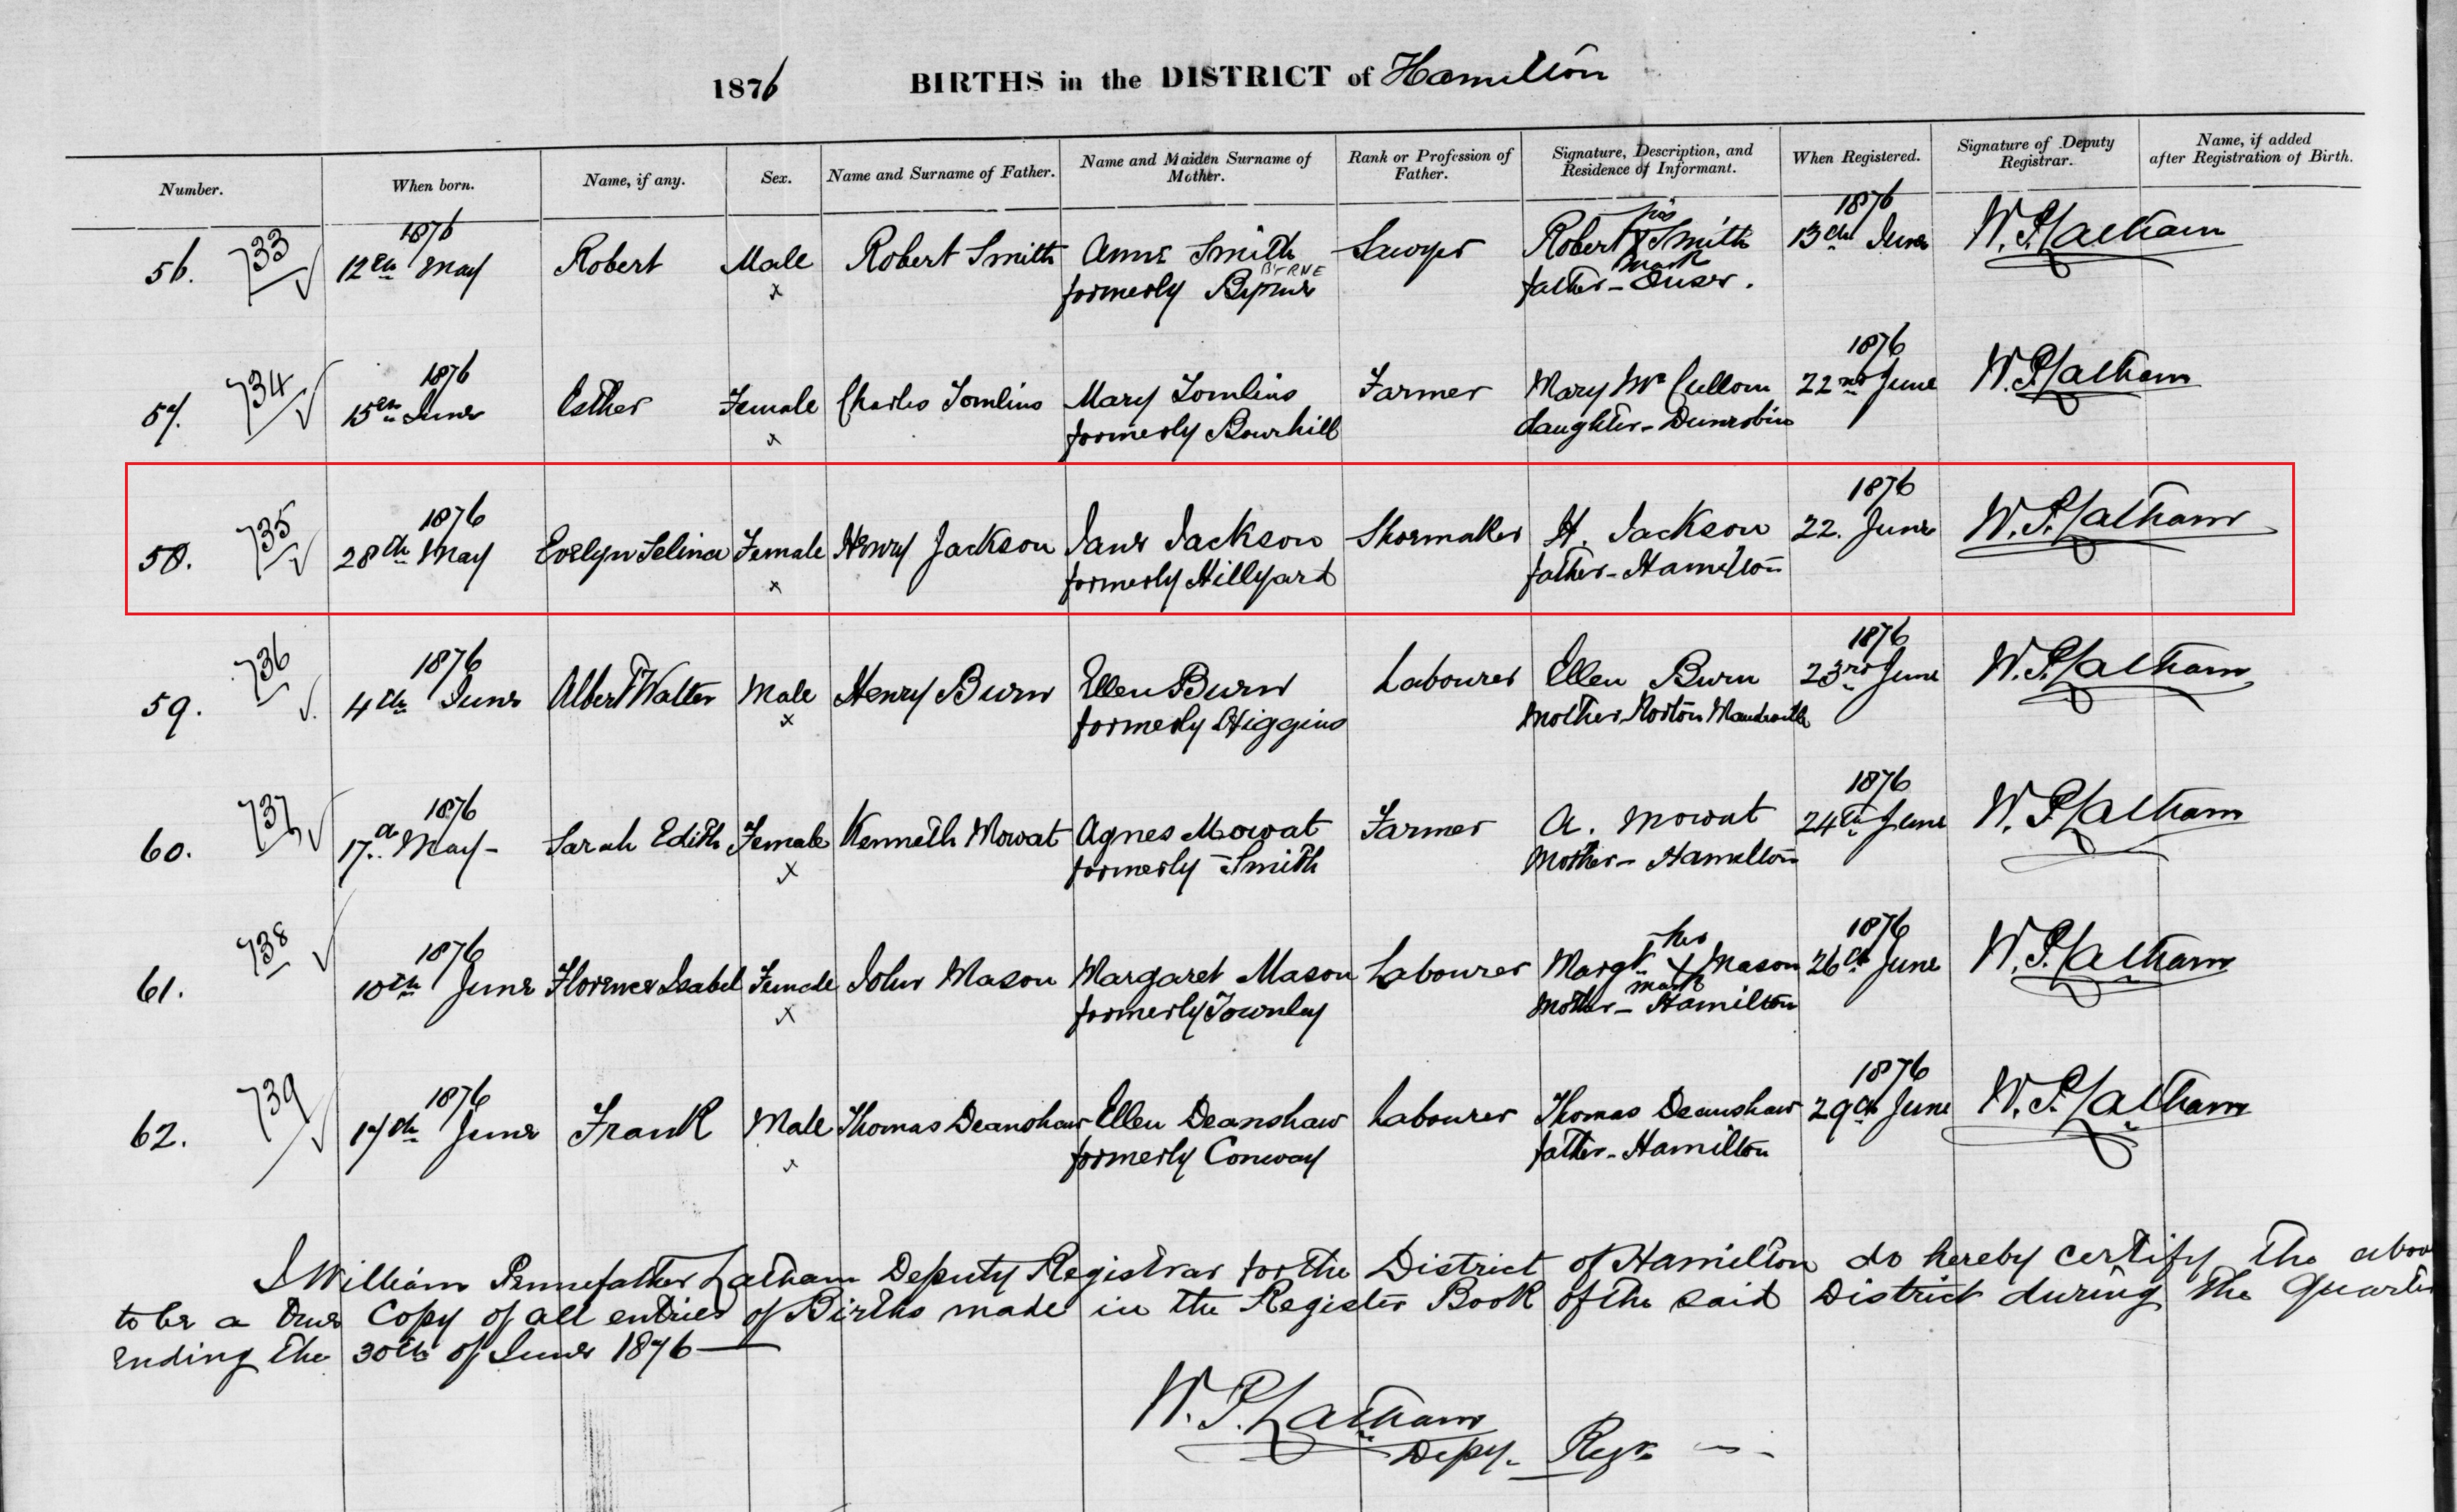 1876 BIRTHS in the DISTRICT of Hamilton
Number. When born. Name, if any. Sex. Name and Surname of Father. Name and Maiden Surname of Mother. Rank or Profession of Father. Signature, Description, and Residence of Informant. When Registered. Signature of Deputy Registrar. Name, if added after Registration of Birth.
1876 his 1876
56. 733 12th May Robert Male Robert Smith Anne Smith Sawyer Robert X Smith 13th June W. P. Latham
x BYRNE mark
formerly father - Ouse.
1876 1876
57. 734 15th June Esther Female Charles Tomlins Mary Tomlins Farmer Mary McCullom 22nd June W. P. Latham
x formerly Bourhill daughter - Dunrobin
1876 1876
58. 735 28th May Evelyn Selina Female Henry Jackson Jane Jackson Shoemaker H. Jackson 22. June W. P. Latham
x formerly Hillyard father - Hamilton
1876 1876
59. 736 4th June Albert Walter Male Henry Burn Ellen Burn Labourer Ellen Burn 23rd June W. P. Latham
x formerly Higgins Mother Norton Mandeville
1876 1876
60. 737 17th May - Sarah Edith Female Kenneth Mowat Agnes Mowat Farmer A. Mowat 24th June W. P. Latham
x formerly Smith Mother - Hamilton
1876 her 1876
61. 738 10th June Florence Isabel Female John Mason Margaret Mason Labourer Margt X Mason 26th June W. P. Latham
x mark
formerly Townley Mother - Hamilton
1876 1876
62. 739 17th June Frank Male Thomas Deanshaw Ellen Deanshaw Labourer Thomas Deanshaw 29th June W. P. Latham
x formerly Conway father - Hamilton
I William Pennefather Latham Deputy Registrar for the District of Hamilton do hereby certify the above
to be a true Copy of all entries of Births made in the Register Book of the said District during the Quarter
ending the 30th of June 1876 —
W. P. Latham
Depy. Regr.